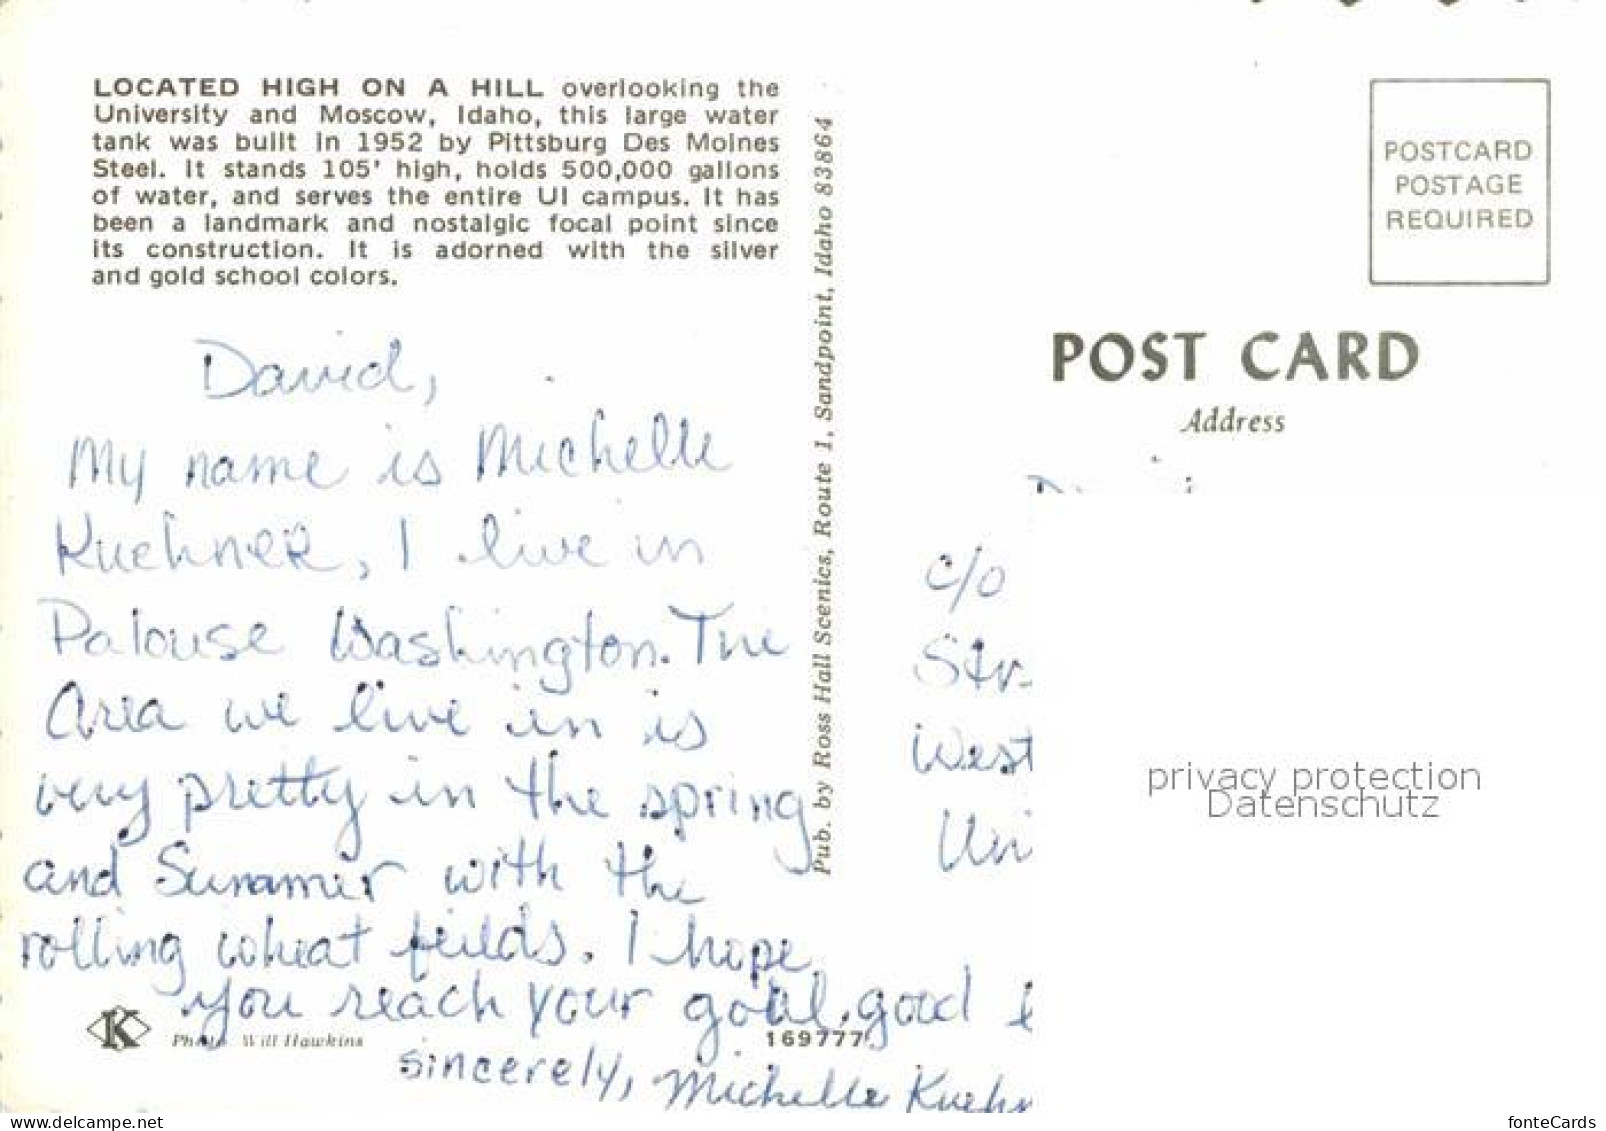 LOCATED HIGH ON A HILL overlooking the
University and Moscow, Idaho, this large water
tank was built in 1952 by Pittsburg Des Moines
Steel. It stands 105' high, holds 500,000 gallons
of water, and serves the entire UI campus. It has
been a landmark and nostalgic focal point since
its construction. It is adorned with the silver
and gold school colors.
David,
My name is Michelle
Kuehner, I live in
Palouse Washington. The
Area we live in is
very pretty in the spring
and Summer with the
rolling wheat fields. I hope
you reach your goal, good
sincerely, Michelle Kuehn
K
Photo Will Hawkins
169777
Pub. by Ross Hall Scenics, Route 1, Sandpoint, Idaho 83864
POSTCARD
POSTAGE
REQUIRED
POST CARD
Address
c/o
Str
West
Uni
privacy protection
Datenschutz
www.delcampe.net
fonteCards